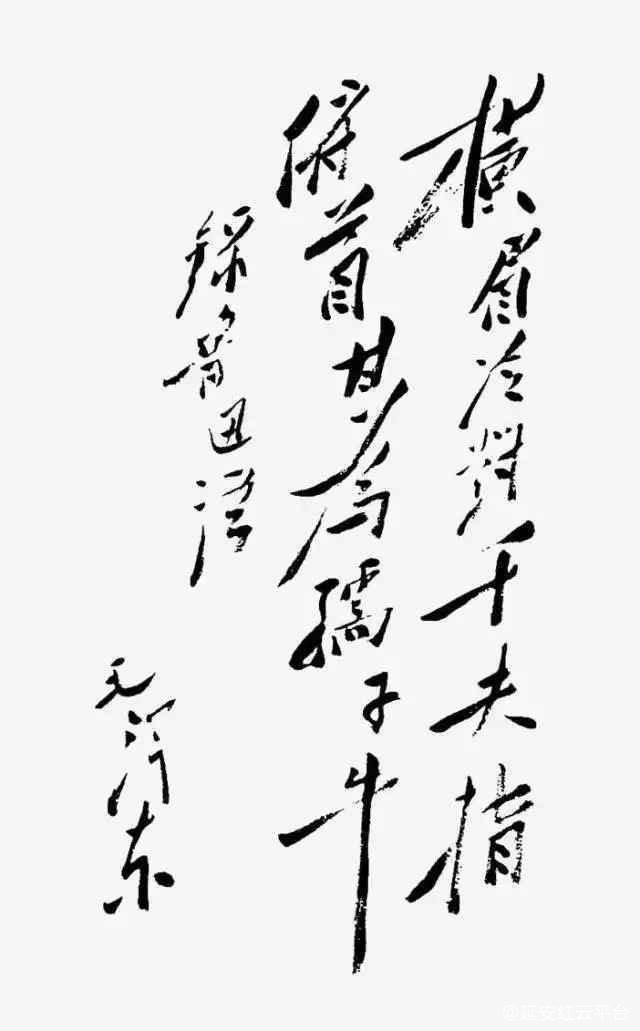 横眉冷对千夫指
俯首甘为孺子牛
録鲁迅诗
毛泽东
@延安红云平台